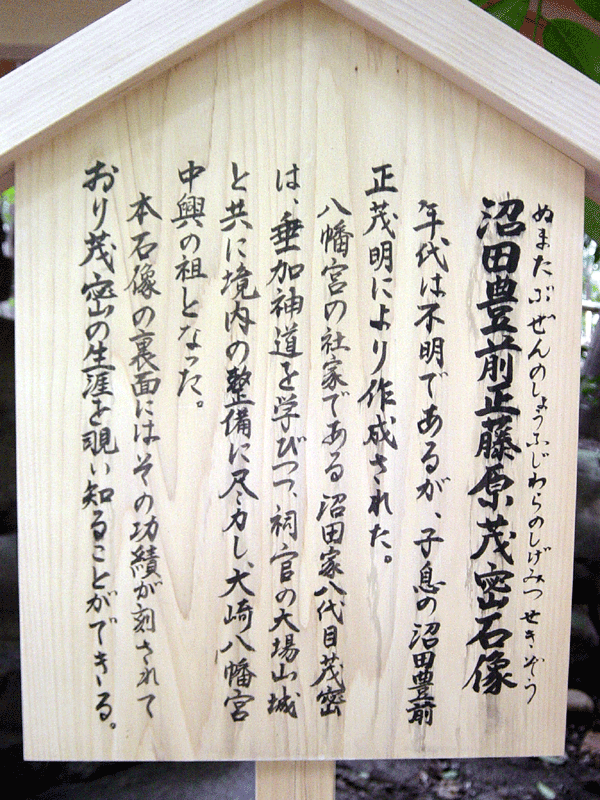 ぬまたぶぜんのしょうふじわらのしげみつ せきぞう
沼田豊前正藤原茂密石像
年代は不明であるが、子息の沼田豊前
正茂明により作成された。
八幡宮の社家である沼田家八代目茂密
は、垂加神道を学びつつ、祠官の大場山城
と共に境内の整備に尽力し、大崎八幡宮
中興の祖となった。
本石像の裏面にはその功績が刻されて
おり茂密の生涯を覗い知ることができる。